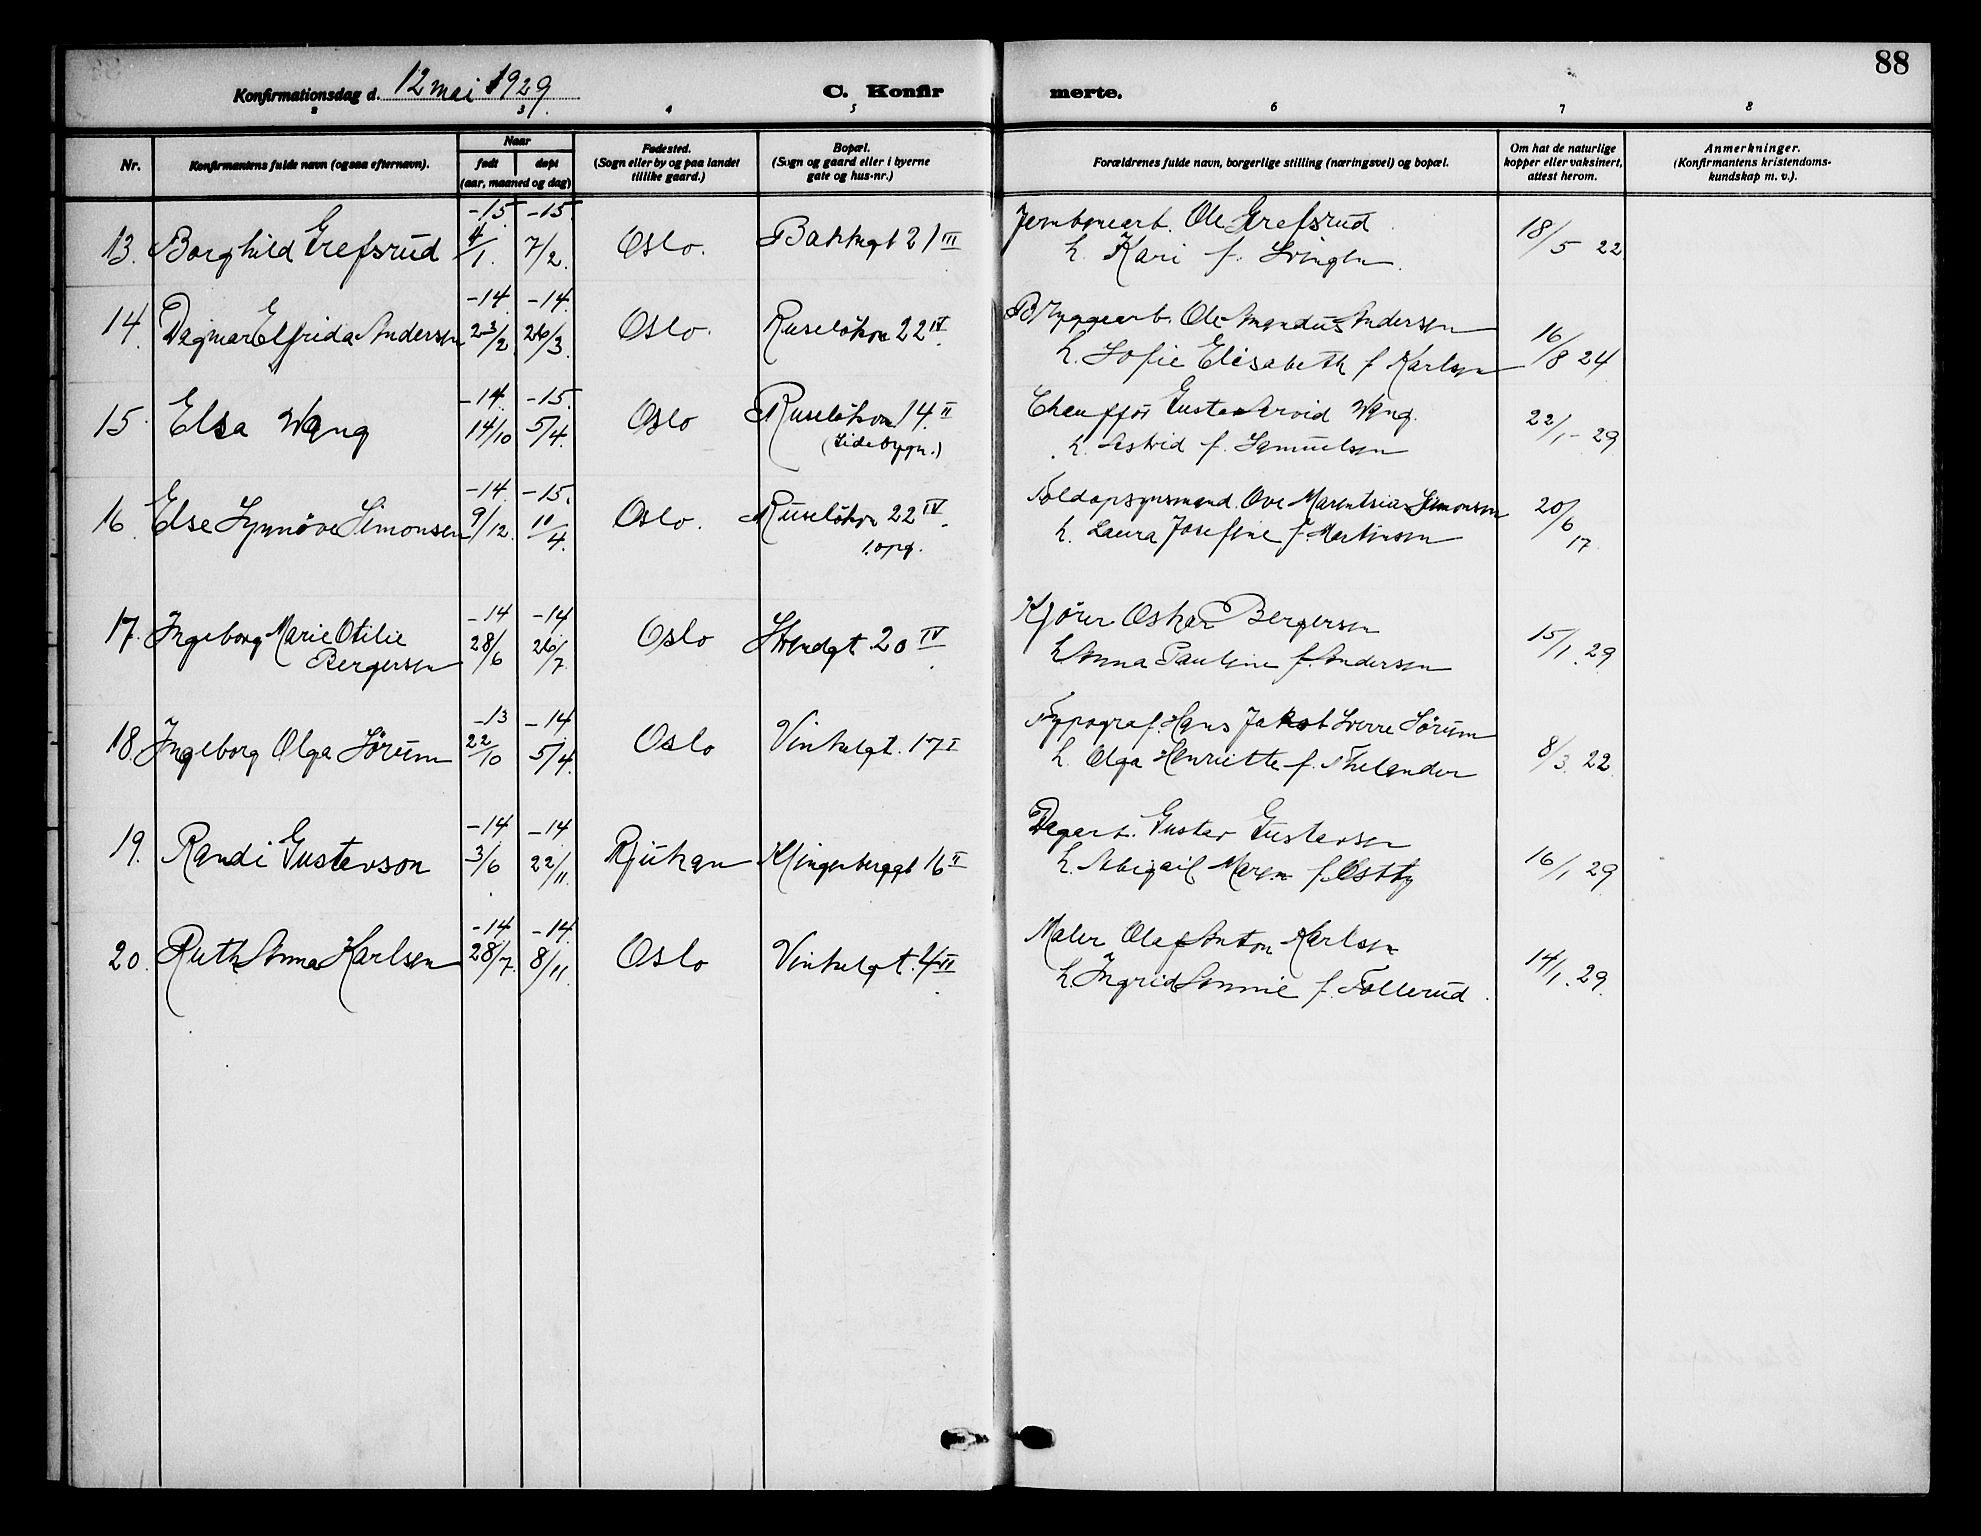 88
Konfirmationsdag d. 12 mai 1929. C. Konfirmerte.
2 3 4 5 6 7 8
Nr. Konfirmantens fulde navn (ogsaa efternavn). Naar født døpt (aar, maaned og dag) Fødested. (Sogn eller by og paa landet tillike gaard.) Bopæl. (Sogn og gaard eller i byerne gate og hus-nr.) Forældrenes fulde navn, borgerlige stilling (næringsvei) og bopæl. Om hat de naturlige kopper eller vaksinert, attest herom. Anmerkninger. (Konfirmantens kristendomskundskap m. v.).
-15 -15
13. Borghild Grefsrud 4/1. 7/2. Oslo. Bakkegt 21 III Jernbanearb. Ole Grefsrud 18/5 22
h. Kari f. Svingen.
-14. -14.
14. Dagmar Elfrida Andersen 23/2. 26/3. Oslo. Ruseløkvn 22 IV. Bryggearb. Ole Amandus Andersen 16/8 24
h. Sofie Elisabeth f Karlsen
-14. -15.
15. Elsa Wang 14/10 5/4. Oslo Ruseløkvn 14 II. Chauffør Gustav Arvid Wang. 22/1 - 29
(Sidebygn.) h. Astrid f. Samuelsen
-14. -15.
16 Else Synnøve Simonsen 9/12. 11/4. Oslo. Ruseløkvn 22 IV. Toldopsynsmand. Ove Marentsius Simonsen 20/6 17.
1. opg. h. Laura Josefine f. Martinsen
-14 -14
17. Ingeborg Marie Otilie 28/6 26/7. Oslo Strandgt. 20 IV. Kjører Oskar Bergersen 15/1. 29
Bergersen h Anna Pauline f. Andersen
-13 -14
18. Ingeborg Olga Sørum 22/10 5/4. Oslo Vinkelgt. 17 I Typograf. Hans Jakob Sverre Sørum 8/3. 22
h. Olga Henriette f. Thelander
-14 -14
19. Randi Gustavson 3/6 22/11. Rjukan Klingenberggt 16 II Dagarb. Gustav Gustavsen 16/1 29
h. Abigail Maren f. Østby
-14 -14.
20. Ruth Anna Karlsen 28/7. 8/11. Oslo Vinkelgt. 4 VI. Maler Olaf Anton Karlsen 14/1. 29.
h. Ingrid Sannie f. Follerud.